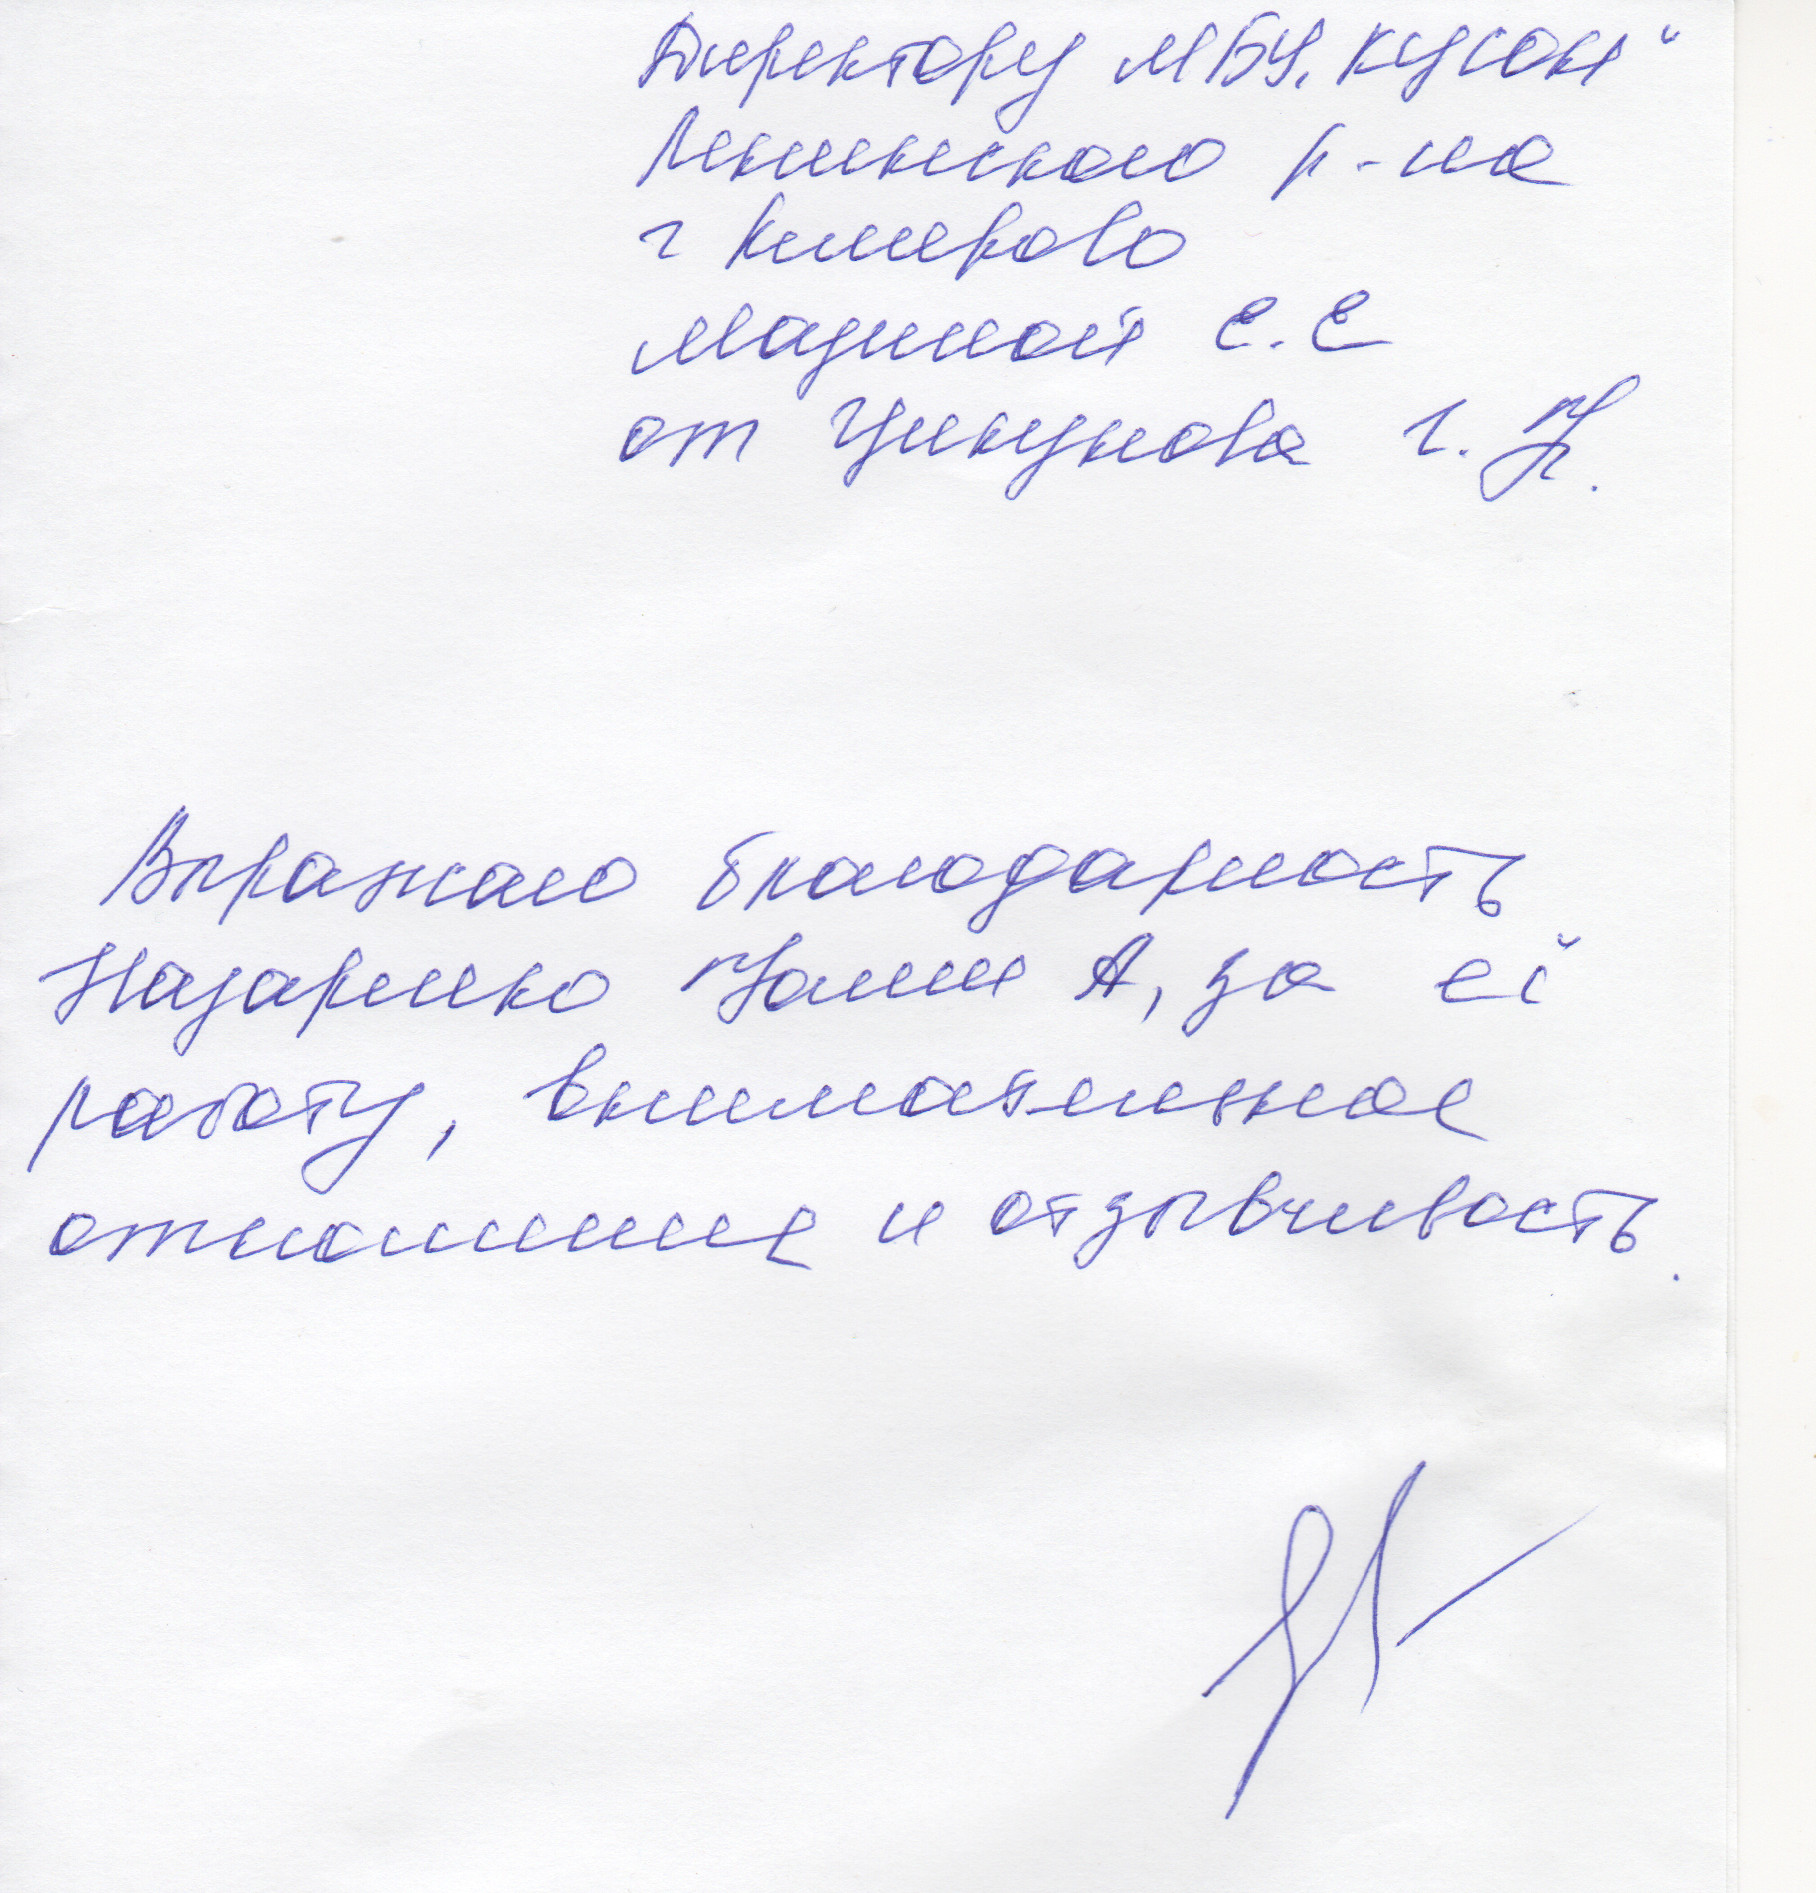 Директору МБУ „КЦСОН"
Ленинского р-на
г Кемерово
Мазиной Е.Е
от Цикунова Г.Н.
Выражаю благодарность
Назаренко А, за её
работу, внимательное
отношение и отзывчивость.